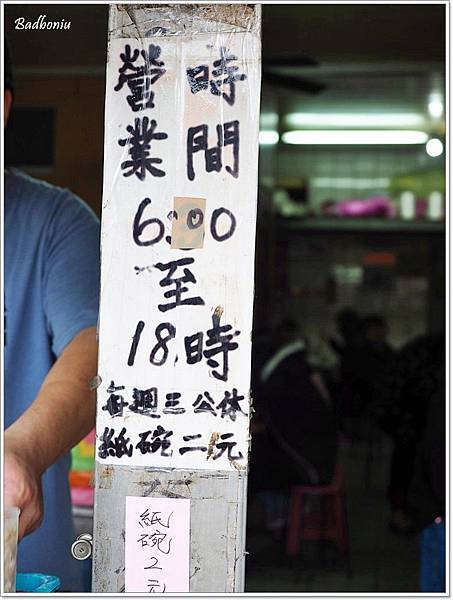 Badboniu
營業時間
6:00
至
18時
每週三公休
紙碗二元
紙碗2元